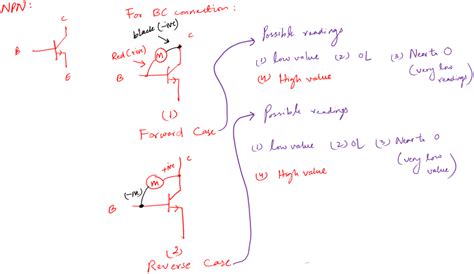 NPN:
C
B
E
For BC connection:
black (-ive)
C
Red (+ive)
M
B
(1)
Forward Case
Possible readings
(1) low value (2) OL (3) Near to 0
(very low
readings)
(4) High value
Possible readings
(1) low value (2) OL (3) Near to 0
(very low
value)
(4) High value
C
+ive
M
(-ive)
B
(2)
Reverse Case